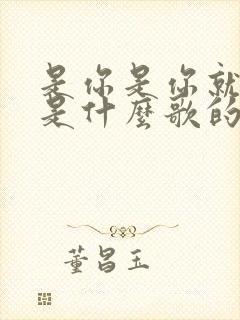 是你是你就
是什麼歌的
董昌玉